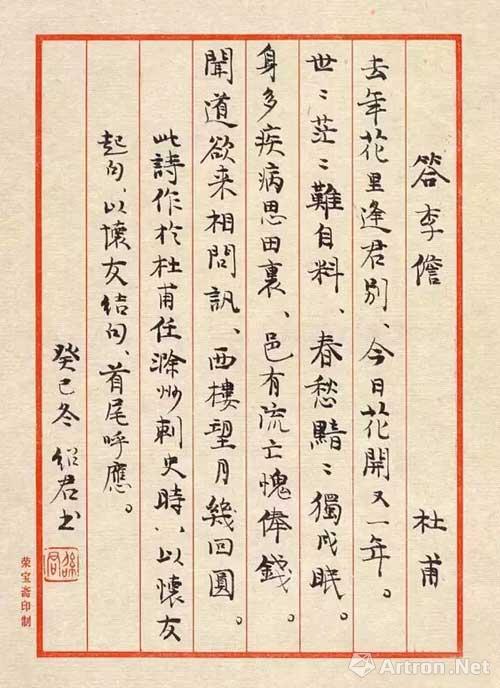 答李儋 杜甫
去年花里逢君别、今日花開又一年。
世〻茫〻難自料、春愁黯〻獨成眠。
身多疾病思田裏、邑有流亡愧俸錢。
聞道欲来相問訊、西樓望月幾回圓。
此詩作於杜甫任滁州刺史時、以懷友
起句、以懷友結句、首尾呼應。
癸巳冬 紹君书
荣宝斋印制
Artron.Net